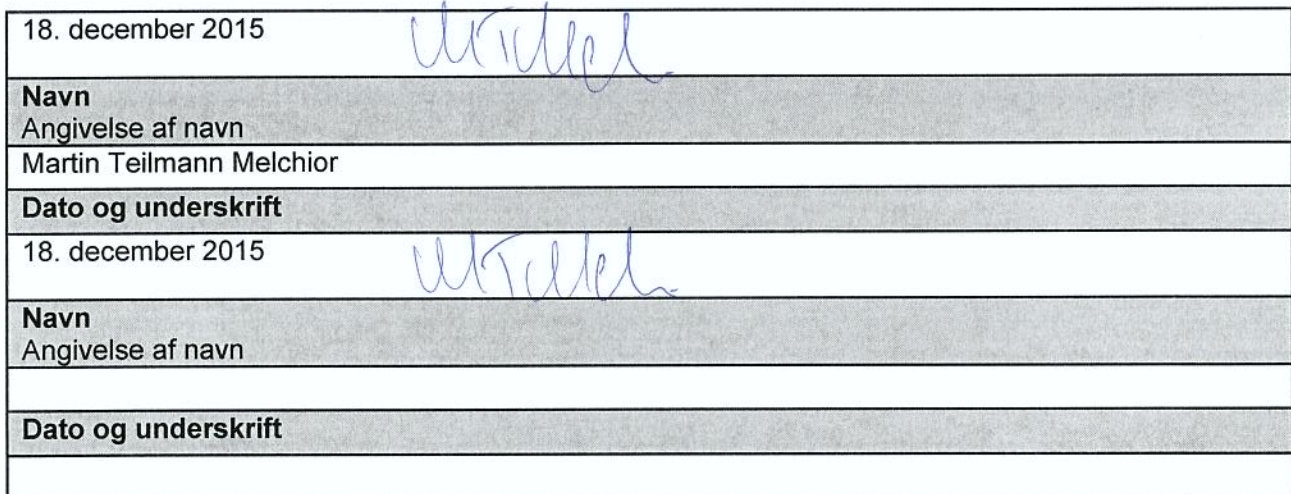 18. december 2015
Navn
Angivelse af navn
Martin Teilmann Melchior
Dato og underskrift
18. december 2015
Navn
Angivelse af navn
Dato og underskrift